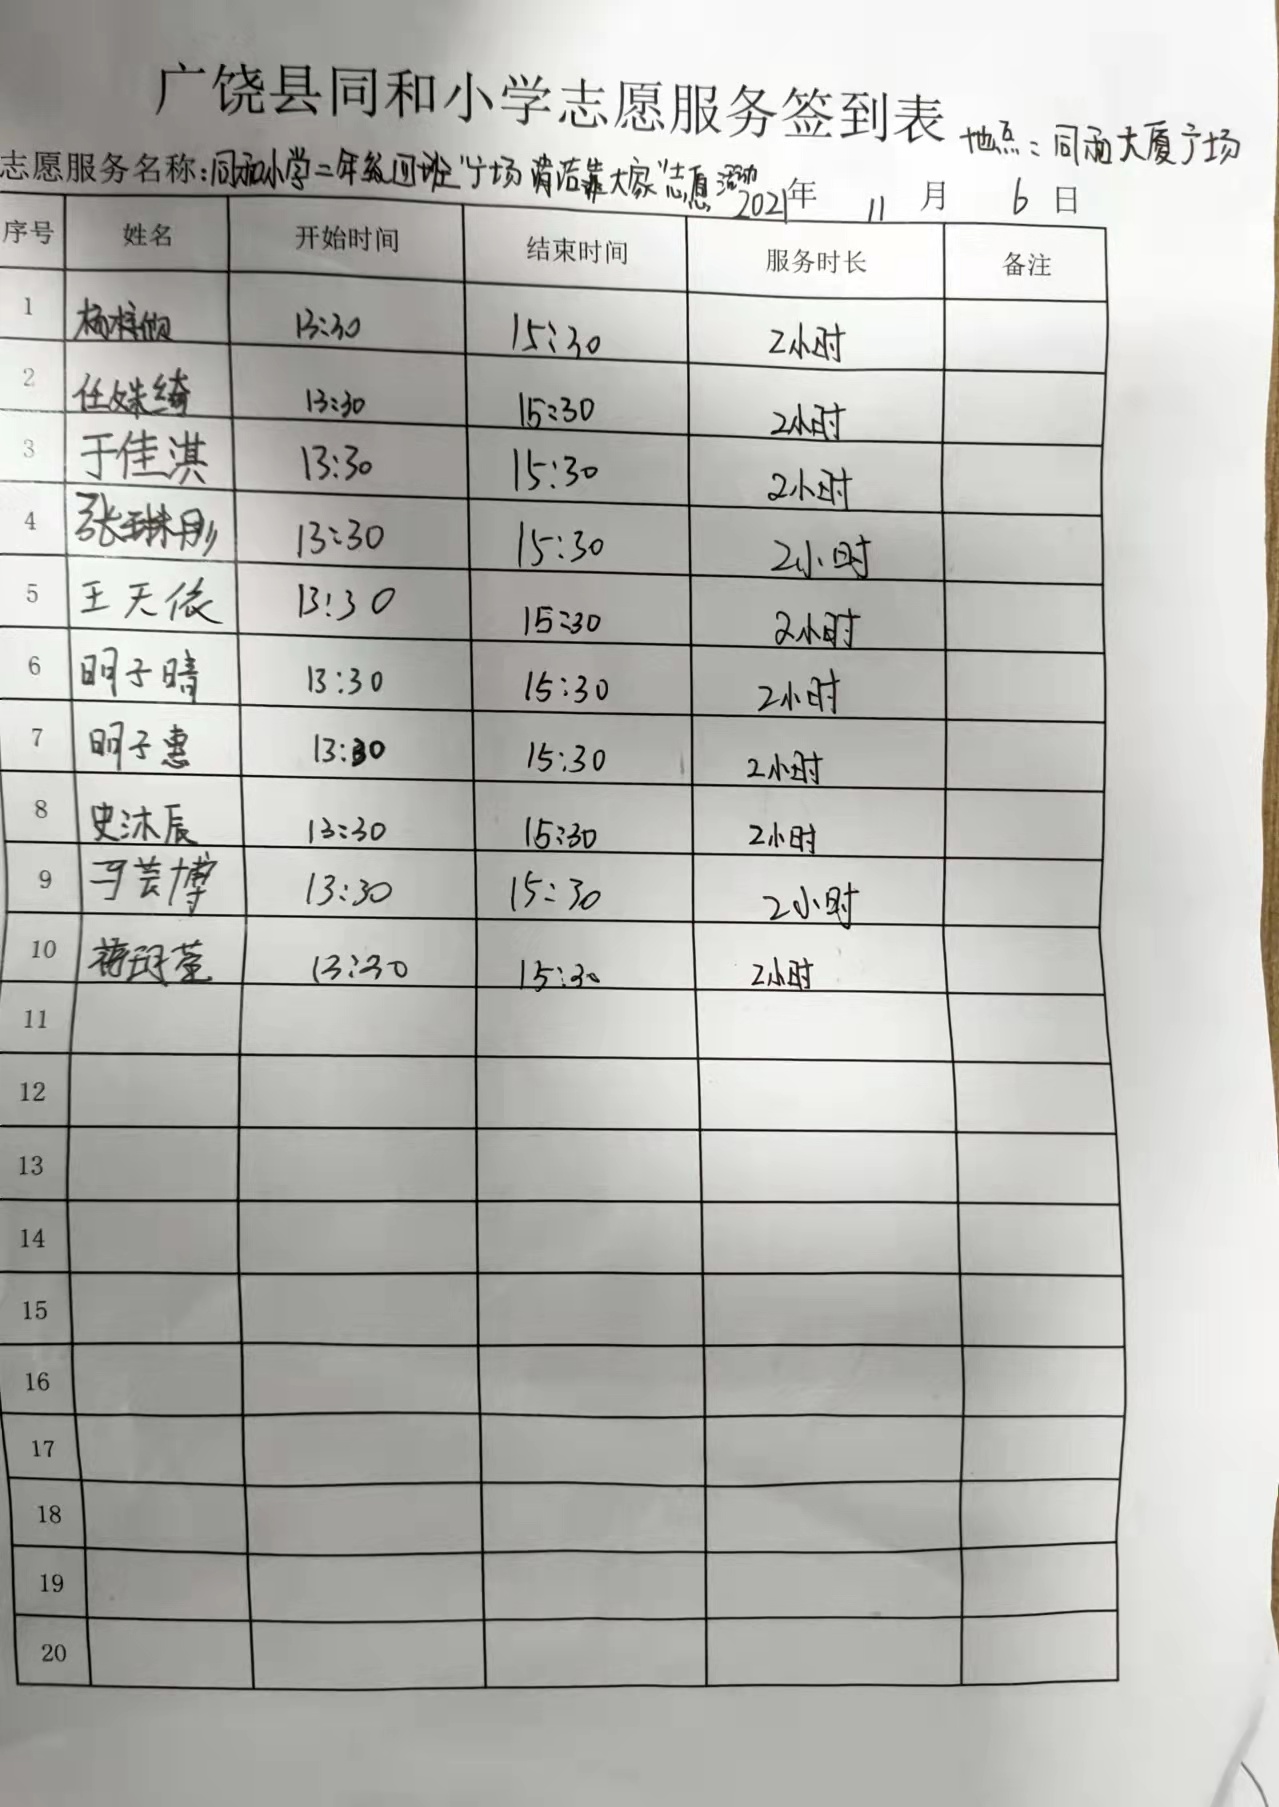 广饶县同和小学志愿服务签到表
地点：同和大厦广场
志愿服务名称:同和小学二年级四班"广场清洁靠大家"志愿活动
2021年 11 月 6 日
序号 姓名 开始时间 结束时间 服务时长 备注
1 杨梓 13:30 15:30 2小时
2 任姝绮 13:30 15:30 2小时
3 于佳淇 13:30 15:30 2小时
4 张琳彤 13:30 15:30 2小时
5 王天依 13:30 15:30 2小时
6 明子晴 13:30 15:30 2小时
7 明子惠 13:30 15:30 2小时
8 史沐辰 13:30 15:30 2小时
9 马芸博 13:30 15:30 2小时
10 13:30 15:30 2小时
11
12
13
14
15
16
17
18
19
20